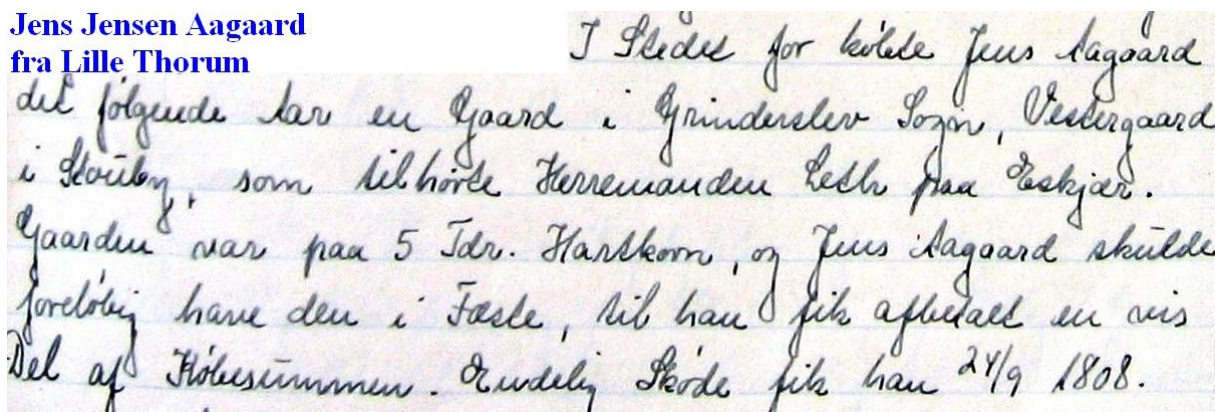 Jens Jensen Aagaard
fra Lille Thorum
I Stedet for købte Jens Aagaard
det følgende Aar en Gaard i Grinderslev Sogn, Vestergaard
i Stouby, som tilhørte Herremanden Leth paa Eskjær.
Gaarden var paa 5 Tdr. Hartkorn, og Jens Aagaard skulde
foreløbig have den i Fæste, til han fik afbetalt en vis
Del af Købesummen. Endelig Skøde fik han 24/9 1808.